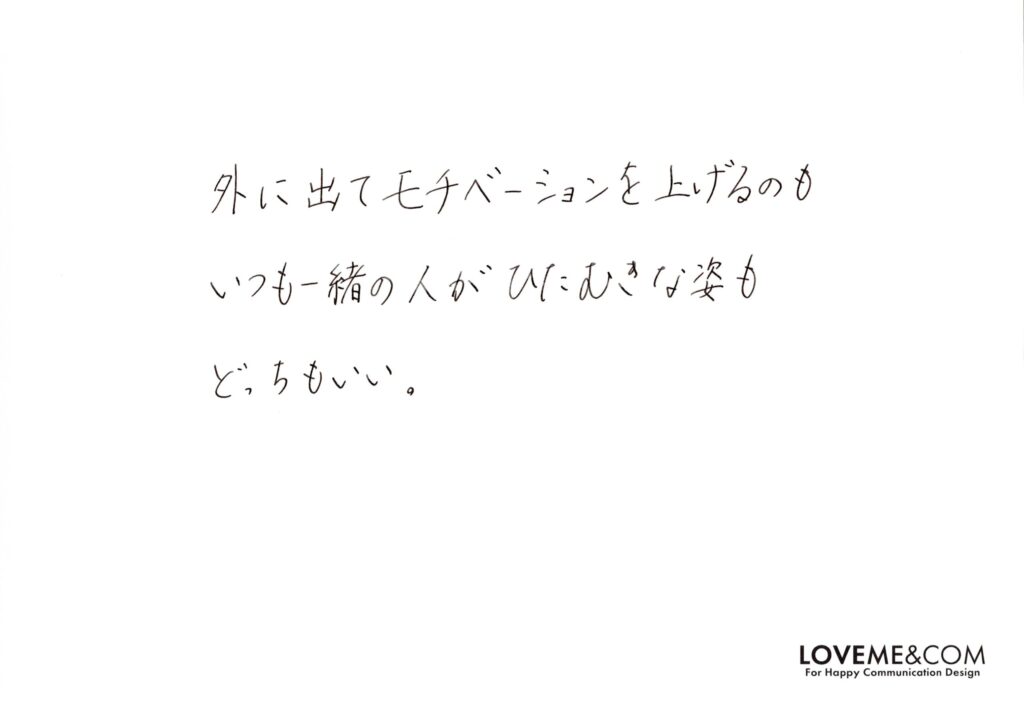 外に出てモチベーションを上げるのも
いつも一緒の人がひたむきな姿も
どっちもいい。
LOVEME&COM
For Happy Communication Design